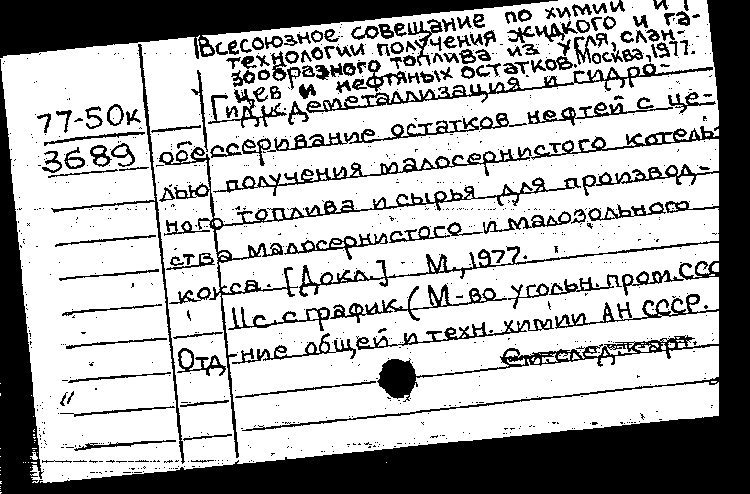 Всесоюзное совещание по химии и
технологии получения жидкого и га-
зообразного топлива из угля, слан-
цев и нефтяных остатков, Москва, 1977.
77-50к
3689
Гидродеметаллизация и гидро-
обессеривание остатков нефтей с це-
лью получения малосернистого котель-
ного топлива и сырья для производ-
ства малосернистого и малозольного
кокса. [Докл.] М., 1977.
11с. с график. (М-во угольн. пром. СССР
Отд-ние общей и техн. химии АН СССР.
См. след. карт.